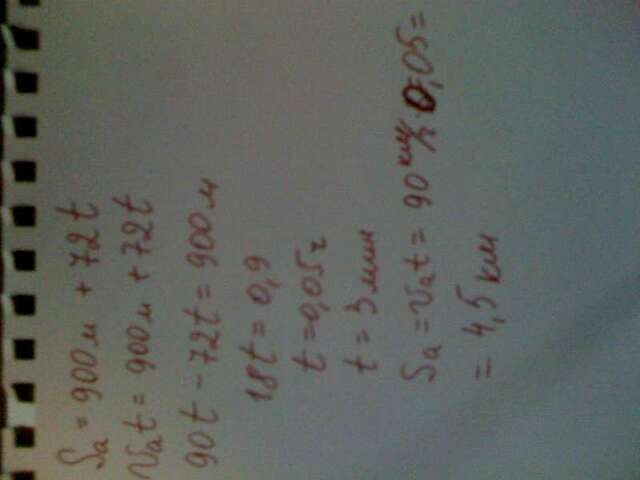 Sa = 900м + 72t
vat = 900м + 72t
90t - 72t = 900м
18t = 0,9
t = 0,05ч
t = 3 мин
Sa = vat = 90 км/ч 0,05 =
= 4,5 км